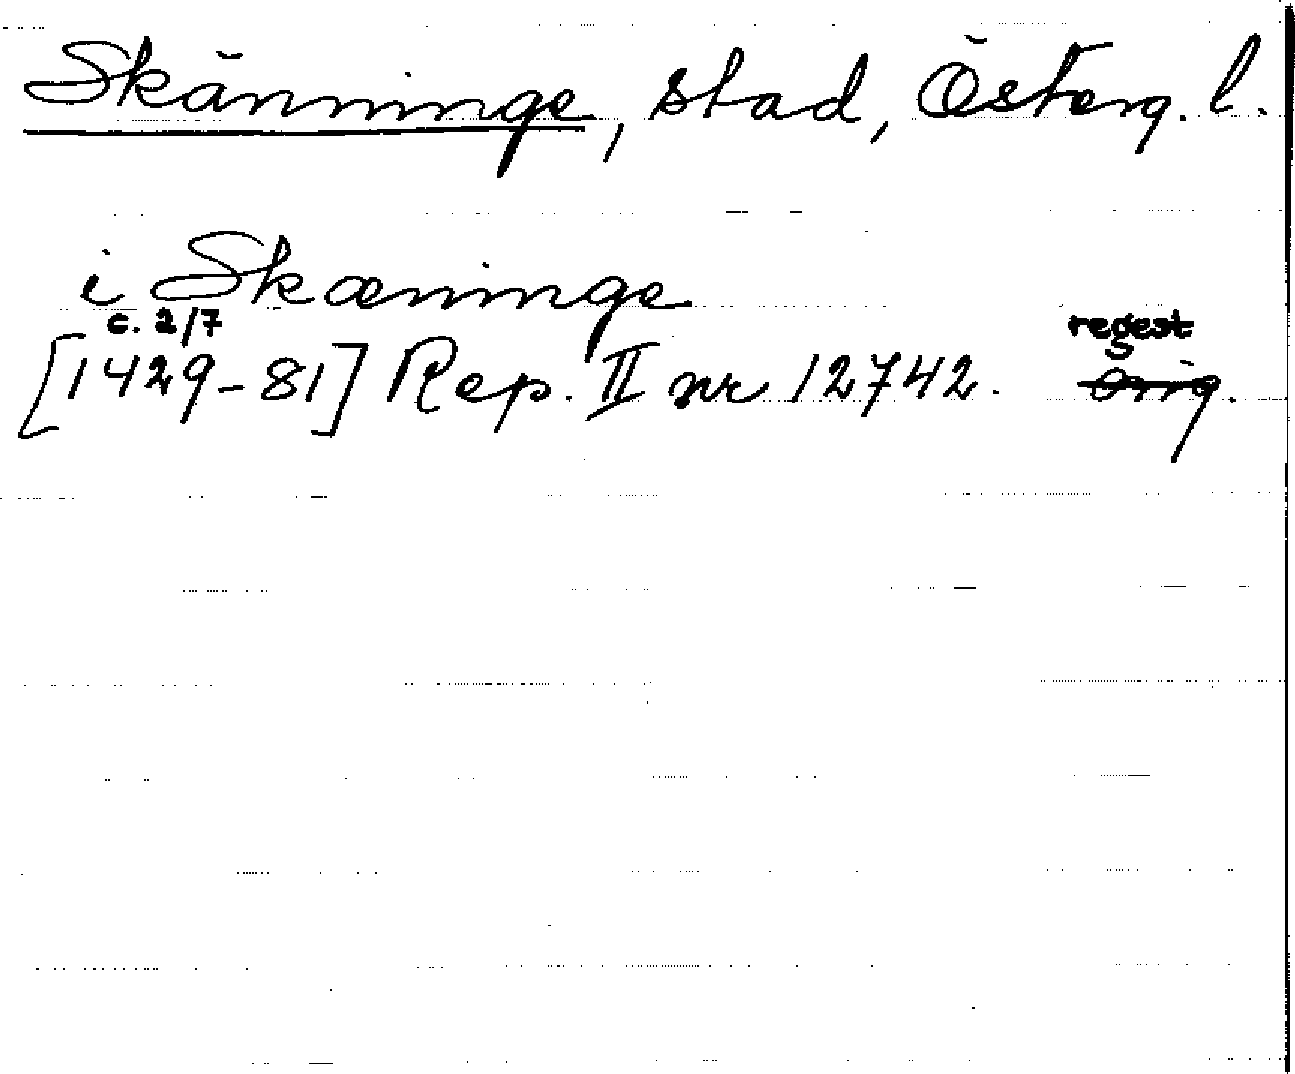 Skänninge, stad, Österg. l.
i Skæninge
c. 2/7 regest
[1429-81] Rep. II nr 12742. Orig.